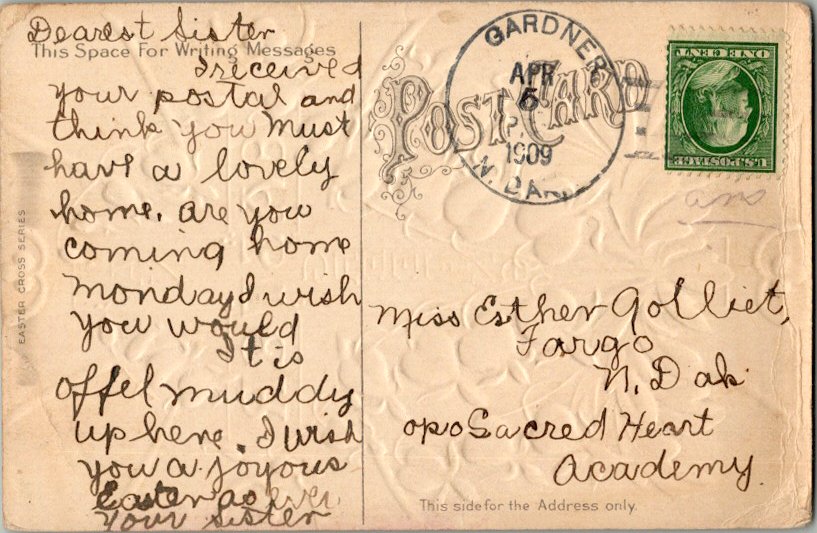 Dearest Sister
This Space For Writing Messages
I received
your postal and
think you must
have a lovely
home. are you
coming home
monday I wish
you would
It is
offel muddy
up here. I wish
you a joyous
Easter as ever
Your Sister
EASTER CROSS SERIES
POST CARD
GARDNER
APR
5
P
1909
N. DAK.
ONE CENT
U.S. POSTAGE
ans
Miss Esther Golliet,
Fargo
N. Dak
opo Sacred Heart
Academy.
This side for the Address only.